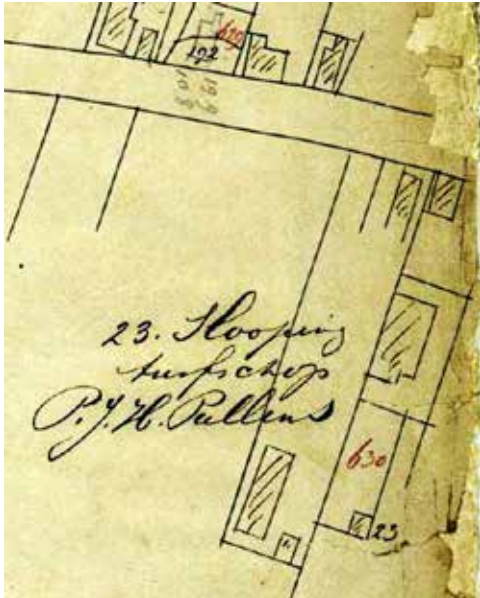 629
192
23. Slooping
turfschop
P. J. H. Pullens
630
23